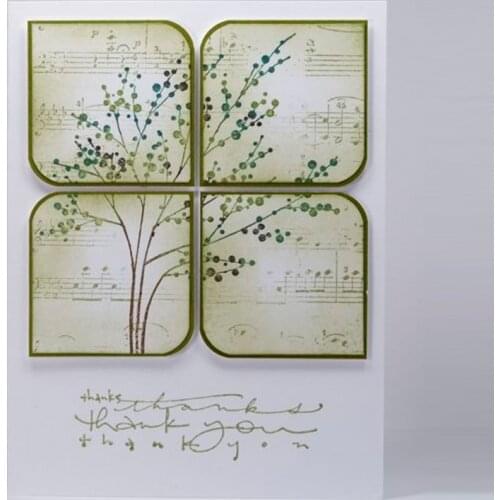 thanks thanks
thank you
thank you